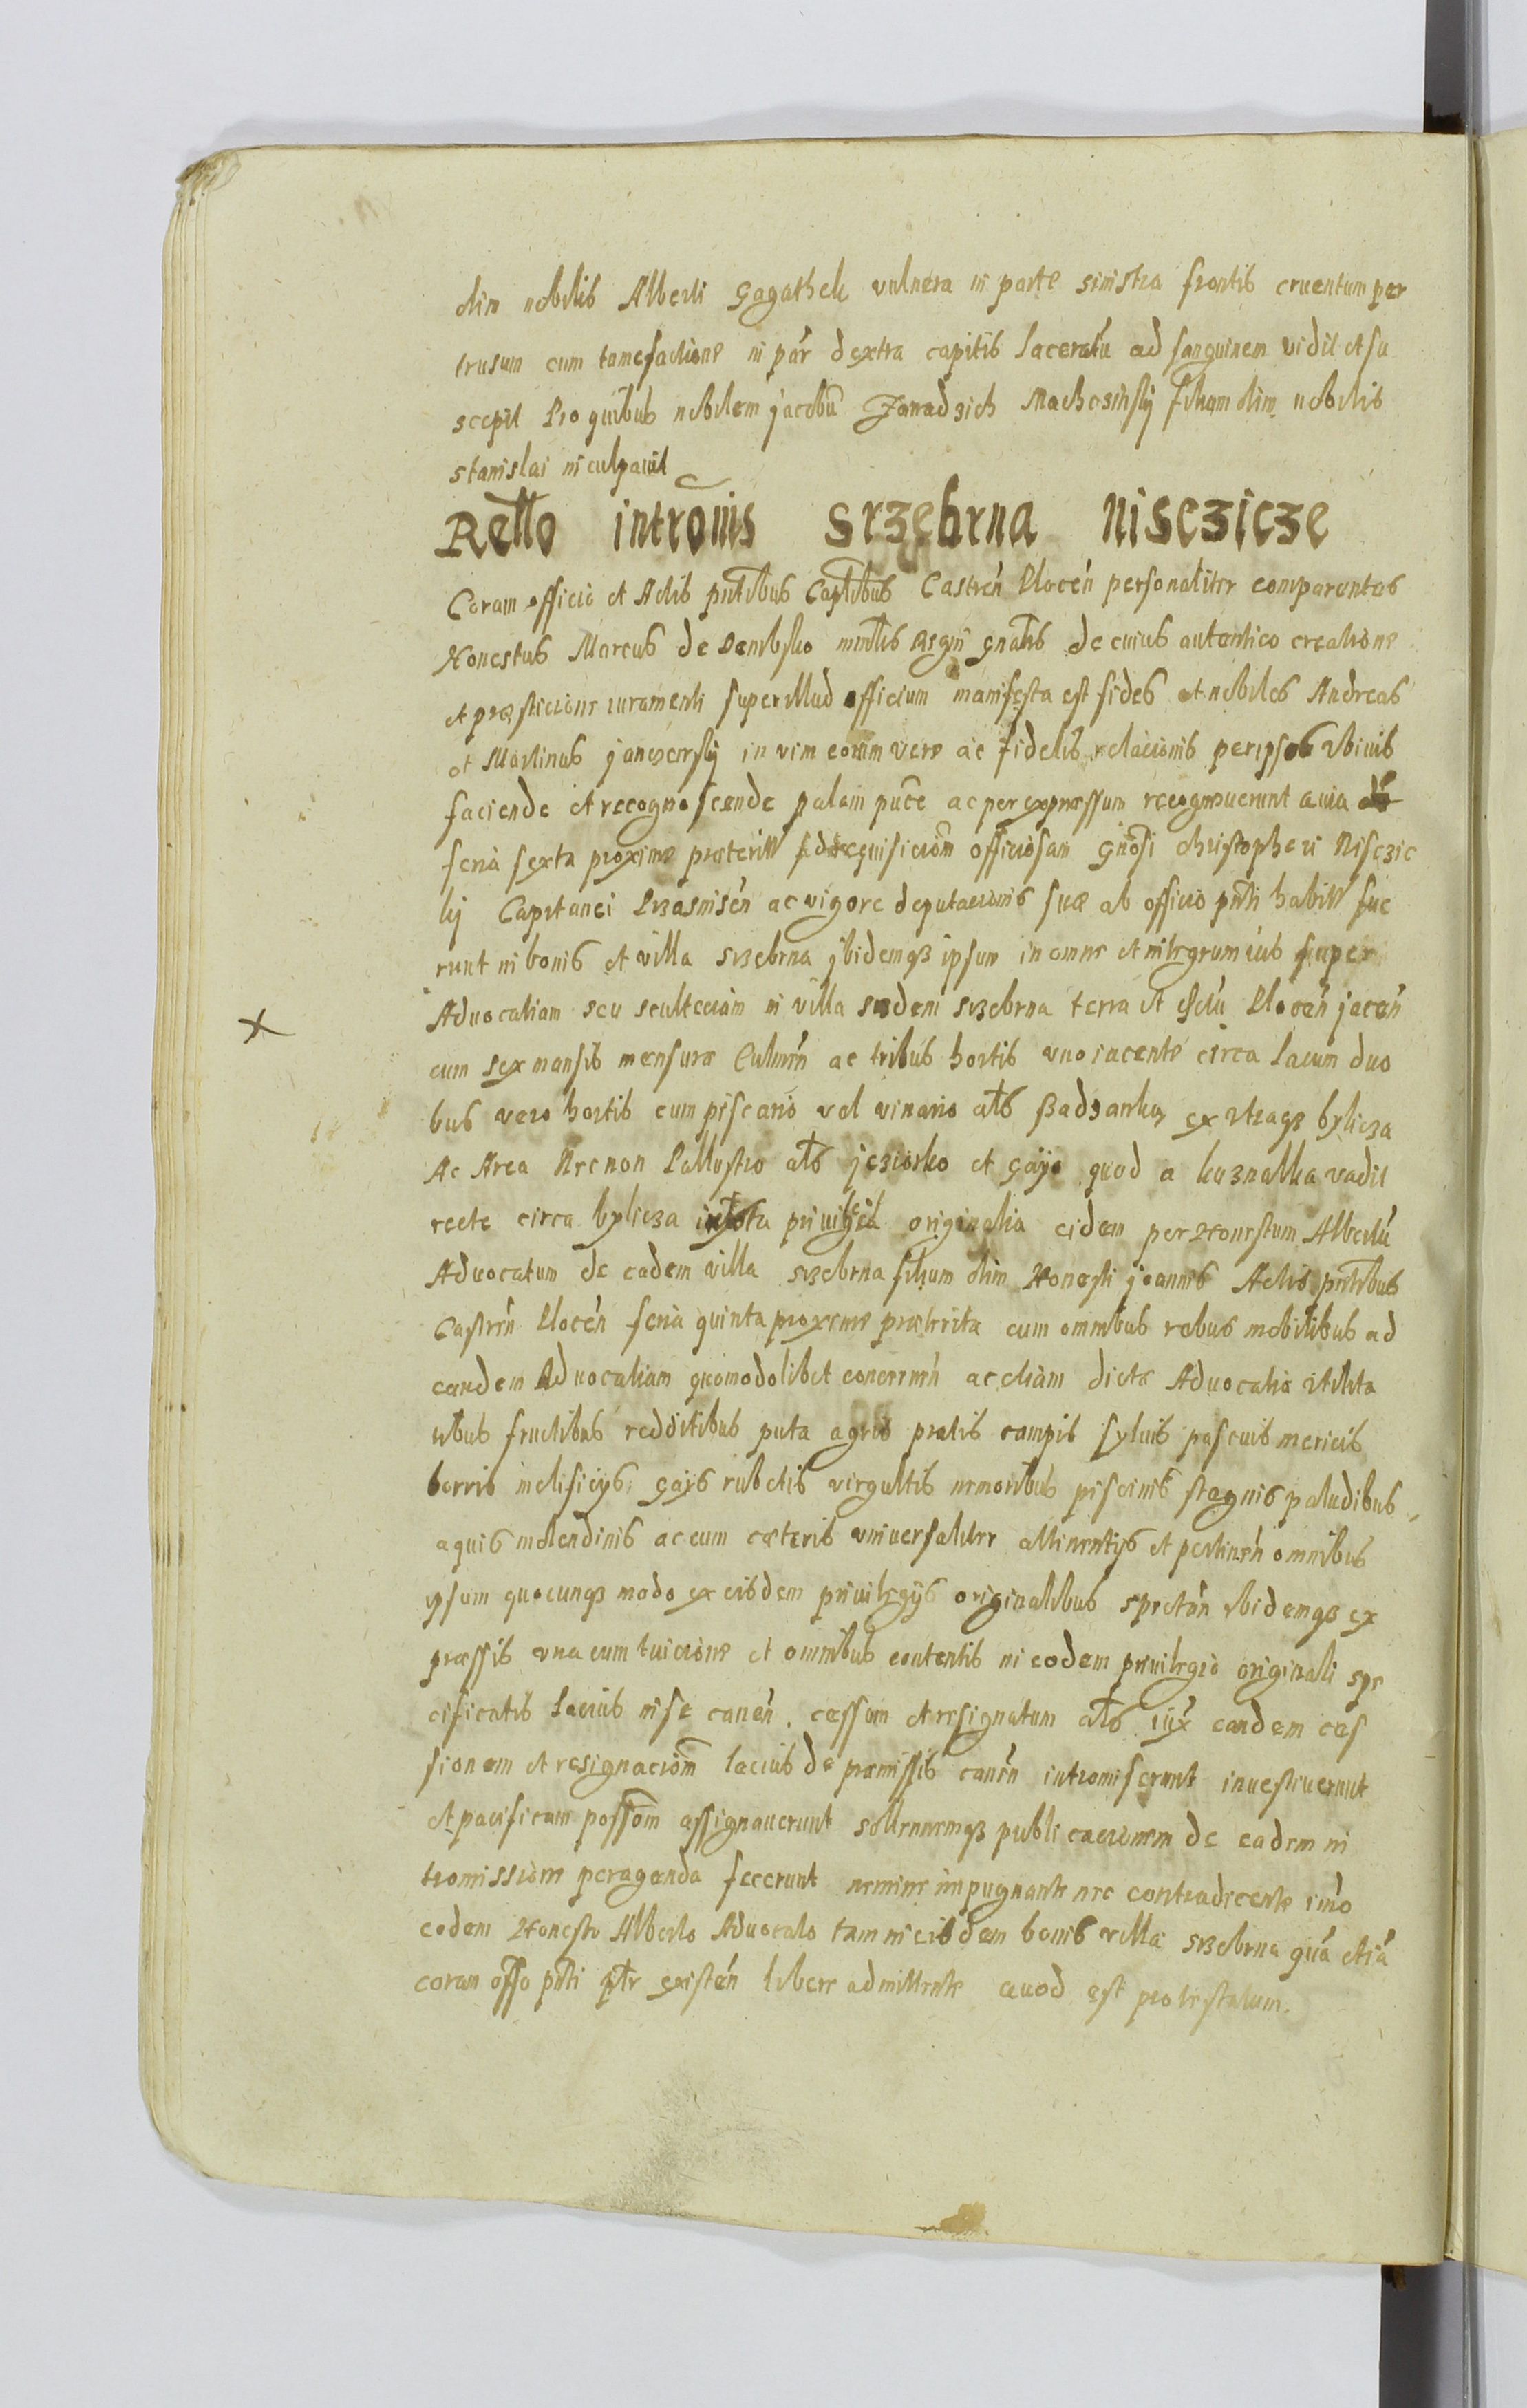 olim nobilis Alberti Gagathek vulnera in parte sinistra frontis cruentum per
trusum cum tumefactione in par dextra capitis laceratu ad sanguinem vidit et su
scepit Pro quibus nobilem jacobu Janadzich Machcsinsky filium olim nobilis
stanislai inculpavit
Rello intromis srzebrna Nisczicze
Coram officio et Actis pntibus Captlibus Castren Plocen personaliter comparentes
Honestus Marcus de Dembsko mintlis Regni gnalis de cuius autentico creatione
et præsticione iuramenti super illud officium manifesta est fides et nobiles Andreas
et Martinus janczersky in vim eorum vere ac fidelis relacionis per ipsos vbivis
faciende et recognoscende palam puce ac per expressum recognoverunt quia
feria sexta proxime præterita ad requisiciom officiosam Gnosi christopheri Nisczic
ky Capitanei Przasnisen ac vigore deputacionis suæ ab officio pnti habitæ fue
runt in bonis et villa srzebrna jbidemqз ipsum in omne et integrum ius super
Advocatiam seu sculteciam in villa eadem srzebrna terra et dctu Plocen jacen
cum sex mansis mensuræ Culmen ac tribus hortis vno iacente circa lacum duo
bus vero hortis cum piscario vel vinario als Sadzawka ex vtraqз bylicza
Ac Area Arcnon Pallustro als jeziorko et Gayo quod a kuznatka vadit
recte circa bylicza iuxta privilegia originalia eidem per Honestum Albertu
Advocatum de eadem villa srzebrna filium olim Honesti joannis Actis pntibus
Castren Plocen feria quinta proxime præterita cum omnibus rebus mobilibus ad
eandem Advocatiam quomodolibet concernen ac etiam dictæ Advocatiæ vtilita
tibus fructibus redditibus puta agris pratis campis sylvis pascuis mericis
borris melisicijs, gajis rubetis virgultis nemoribus piscinis stagnis paludibus,
aquis molendinis ac cum cæteris vniversaliter attinentijs et pertinen omnibus
ipsum quocunqз modo ex eisdem privilegijs originalibus spectan ibidemqз ex
pressis vna cum tuicione et omnibus contentis in eodem privilegio originali spe
cificatis lacius in se canen. cessum et resignatum als iux eandem ces
sionem et resignaciom lacius de præmissis canen intromiserunt investiverunt
et pacificam possom assignaverunt sollennemqз publicacionem de eadem in
tromissione peragenda fecerunt nemine impugnante nec contradicente imo
eodem Honesto Alberto Advocato tam in eisdem bonis villæ srzebrna qua etia
coram offo pnti ptr existen libere admittente Quod est protestatum.